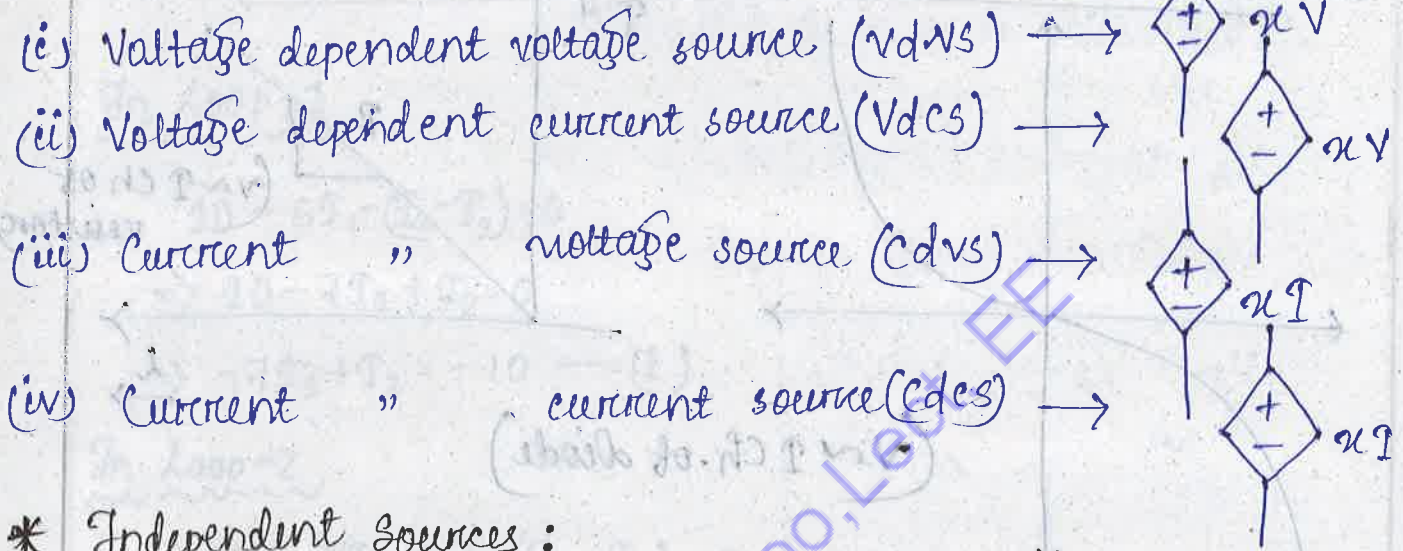 (i) Voltage dependent voltage source (VdVS) → + - xV
(ii) Voltage dependent current source (VdCS) → + - xV
(iii) Current " voltage source (CdVS) → + - xI
(iv) Current " current source (CdCS) → + - xI
* Independent Sources :
o, Lect. EE